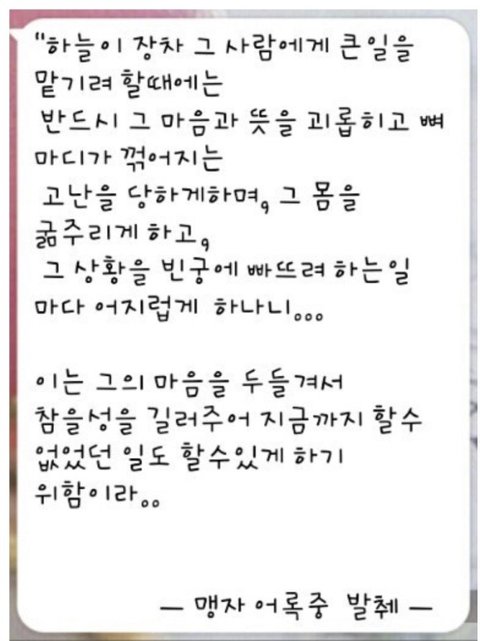 "하늘이 장차 그 사람에게 큰일을
맡기려 할때에는
반드시 그 마음과 뜻을 괴롭히고 뼈
마디가 꺾어지는
고난을 당하게하며, 그 몸을
굶주리게 하고,
그 상황을 빈궁에 빠뜨려 하는일
마다 어지럽게 하나니...
이는 그의 마음을 두들겨서
참을성을 길러주어 지금까지 할수
없었던 일도 할수있게 하기
위함이라..
— 맹자 어록중 발췌 —